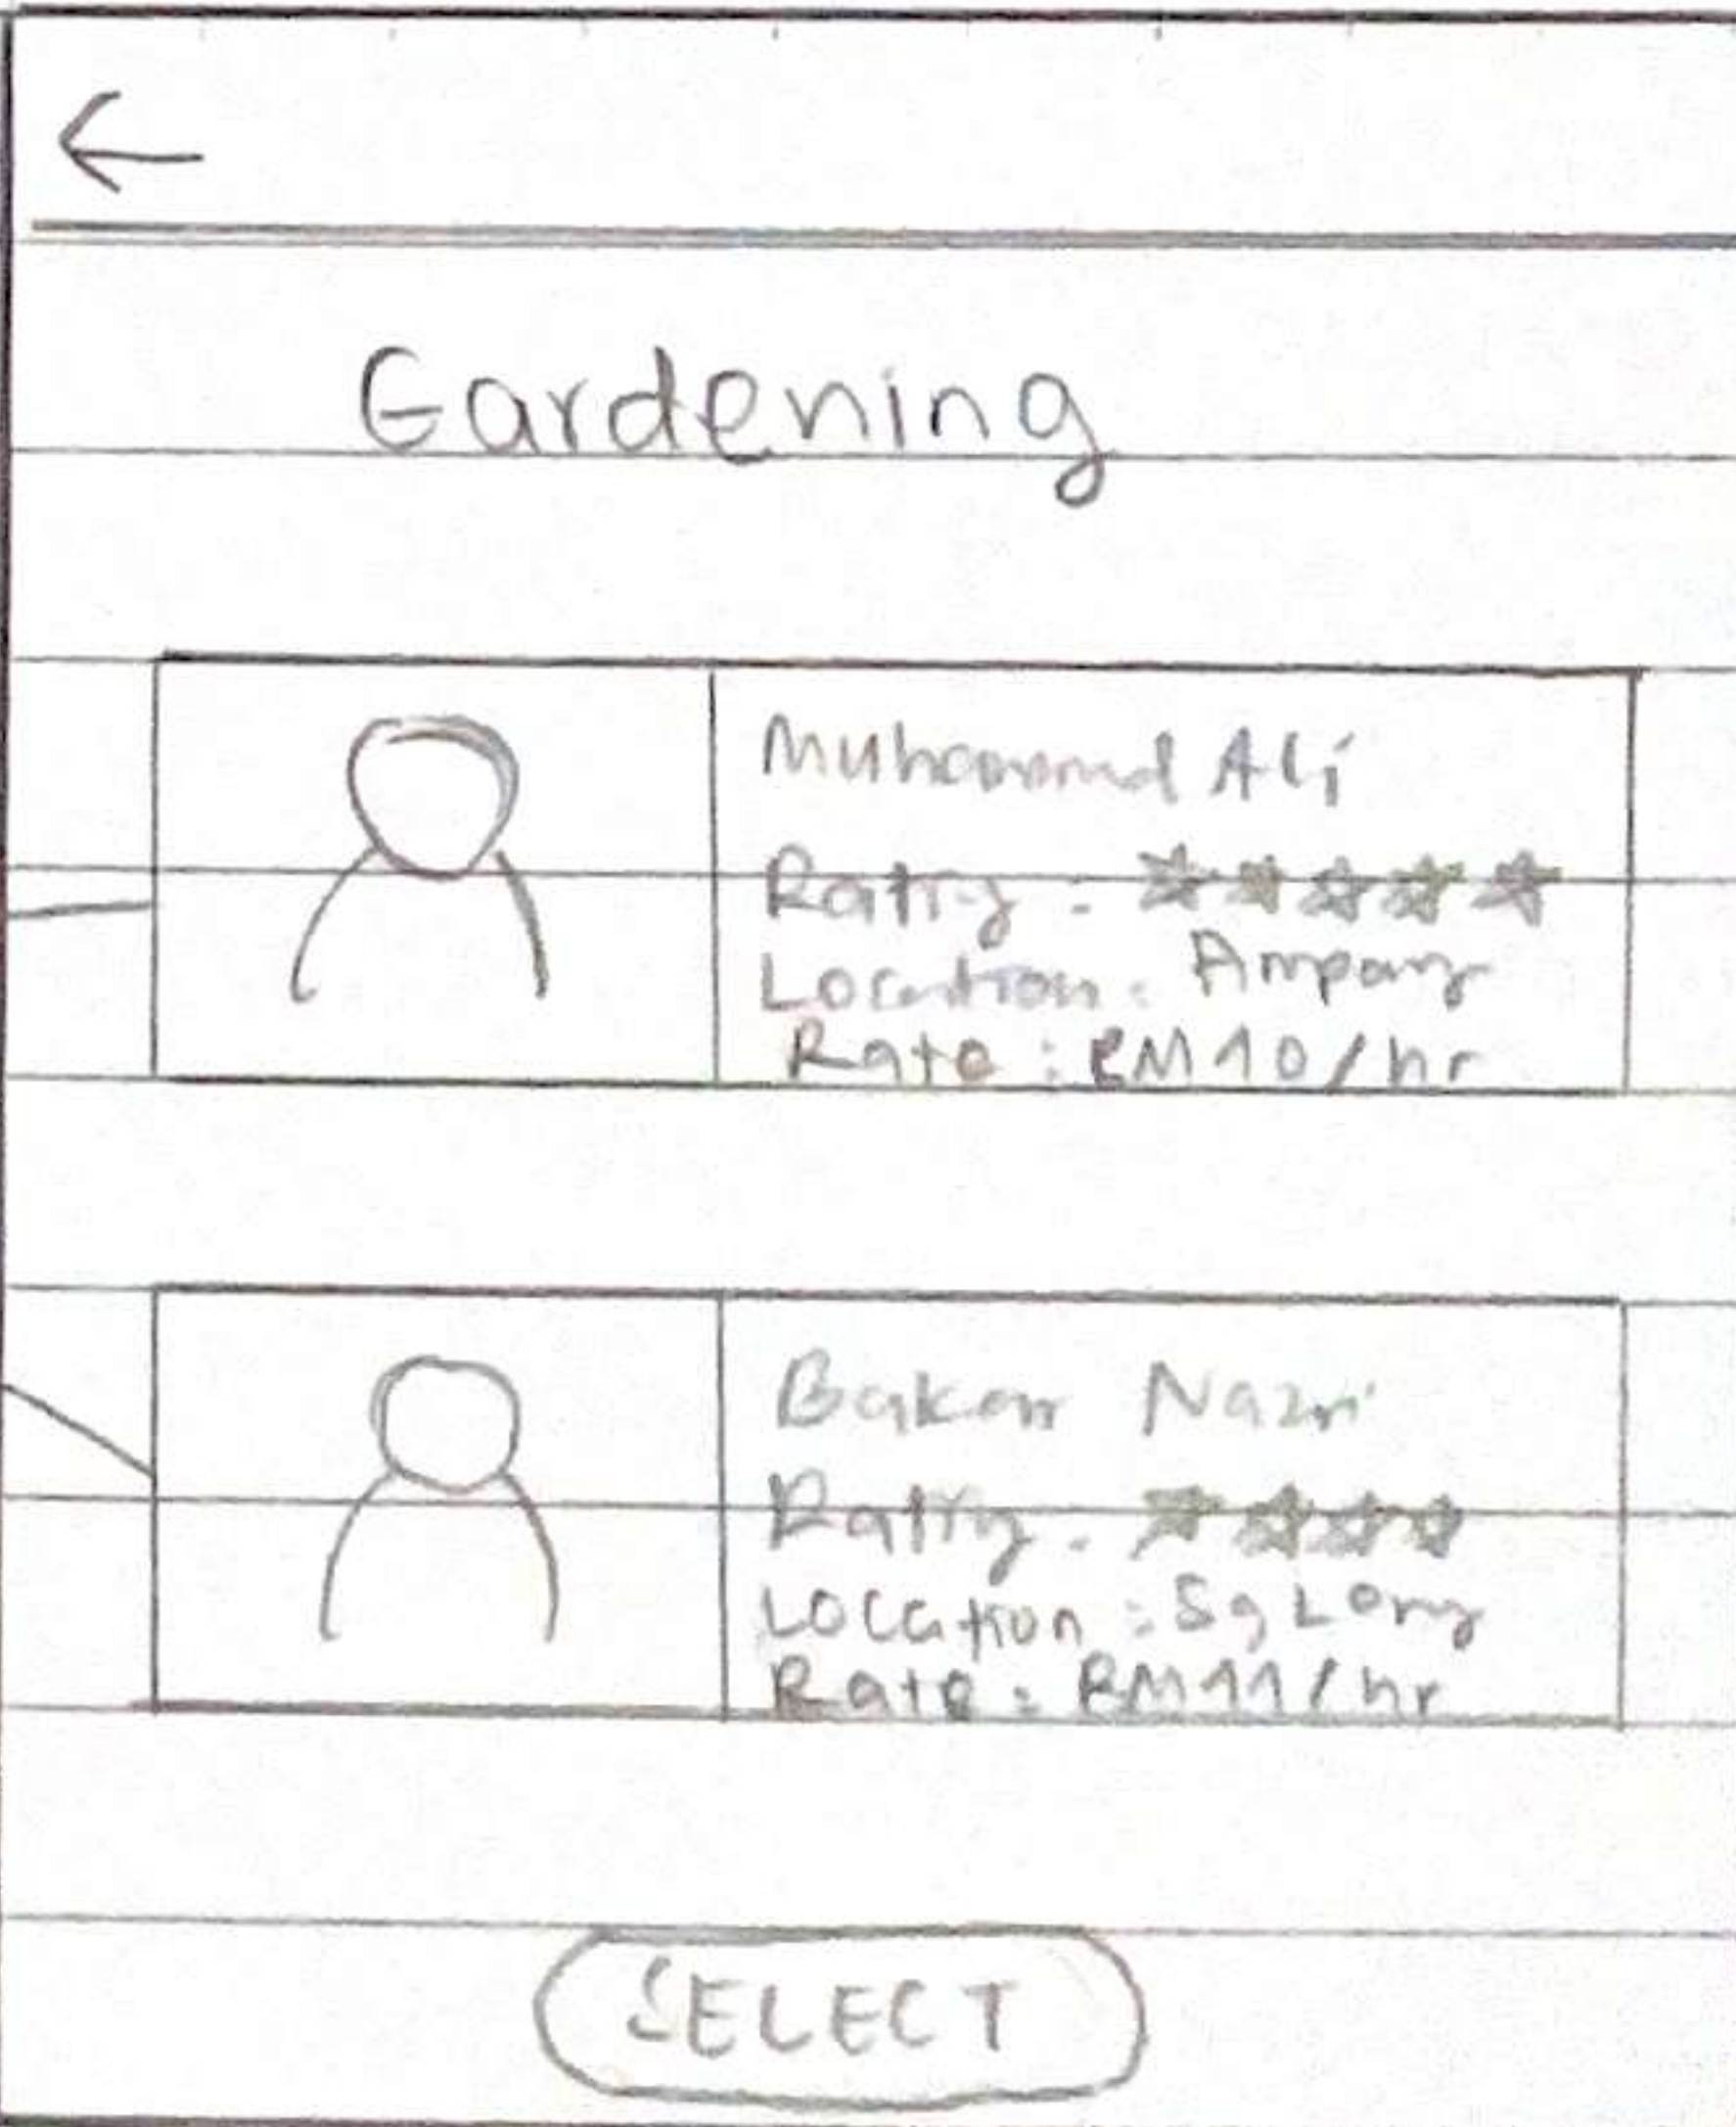 ←
Gardening
Muhammad Ali
Rating : ★★★★★
Location : Ampang
Rate : RM10/hr
Bakar Nazri
Rating : ★★★★
Location : Sg Long
Rate : RM11/hr
SELECT